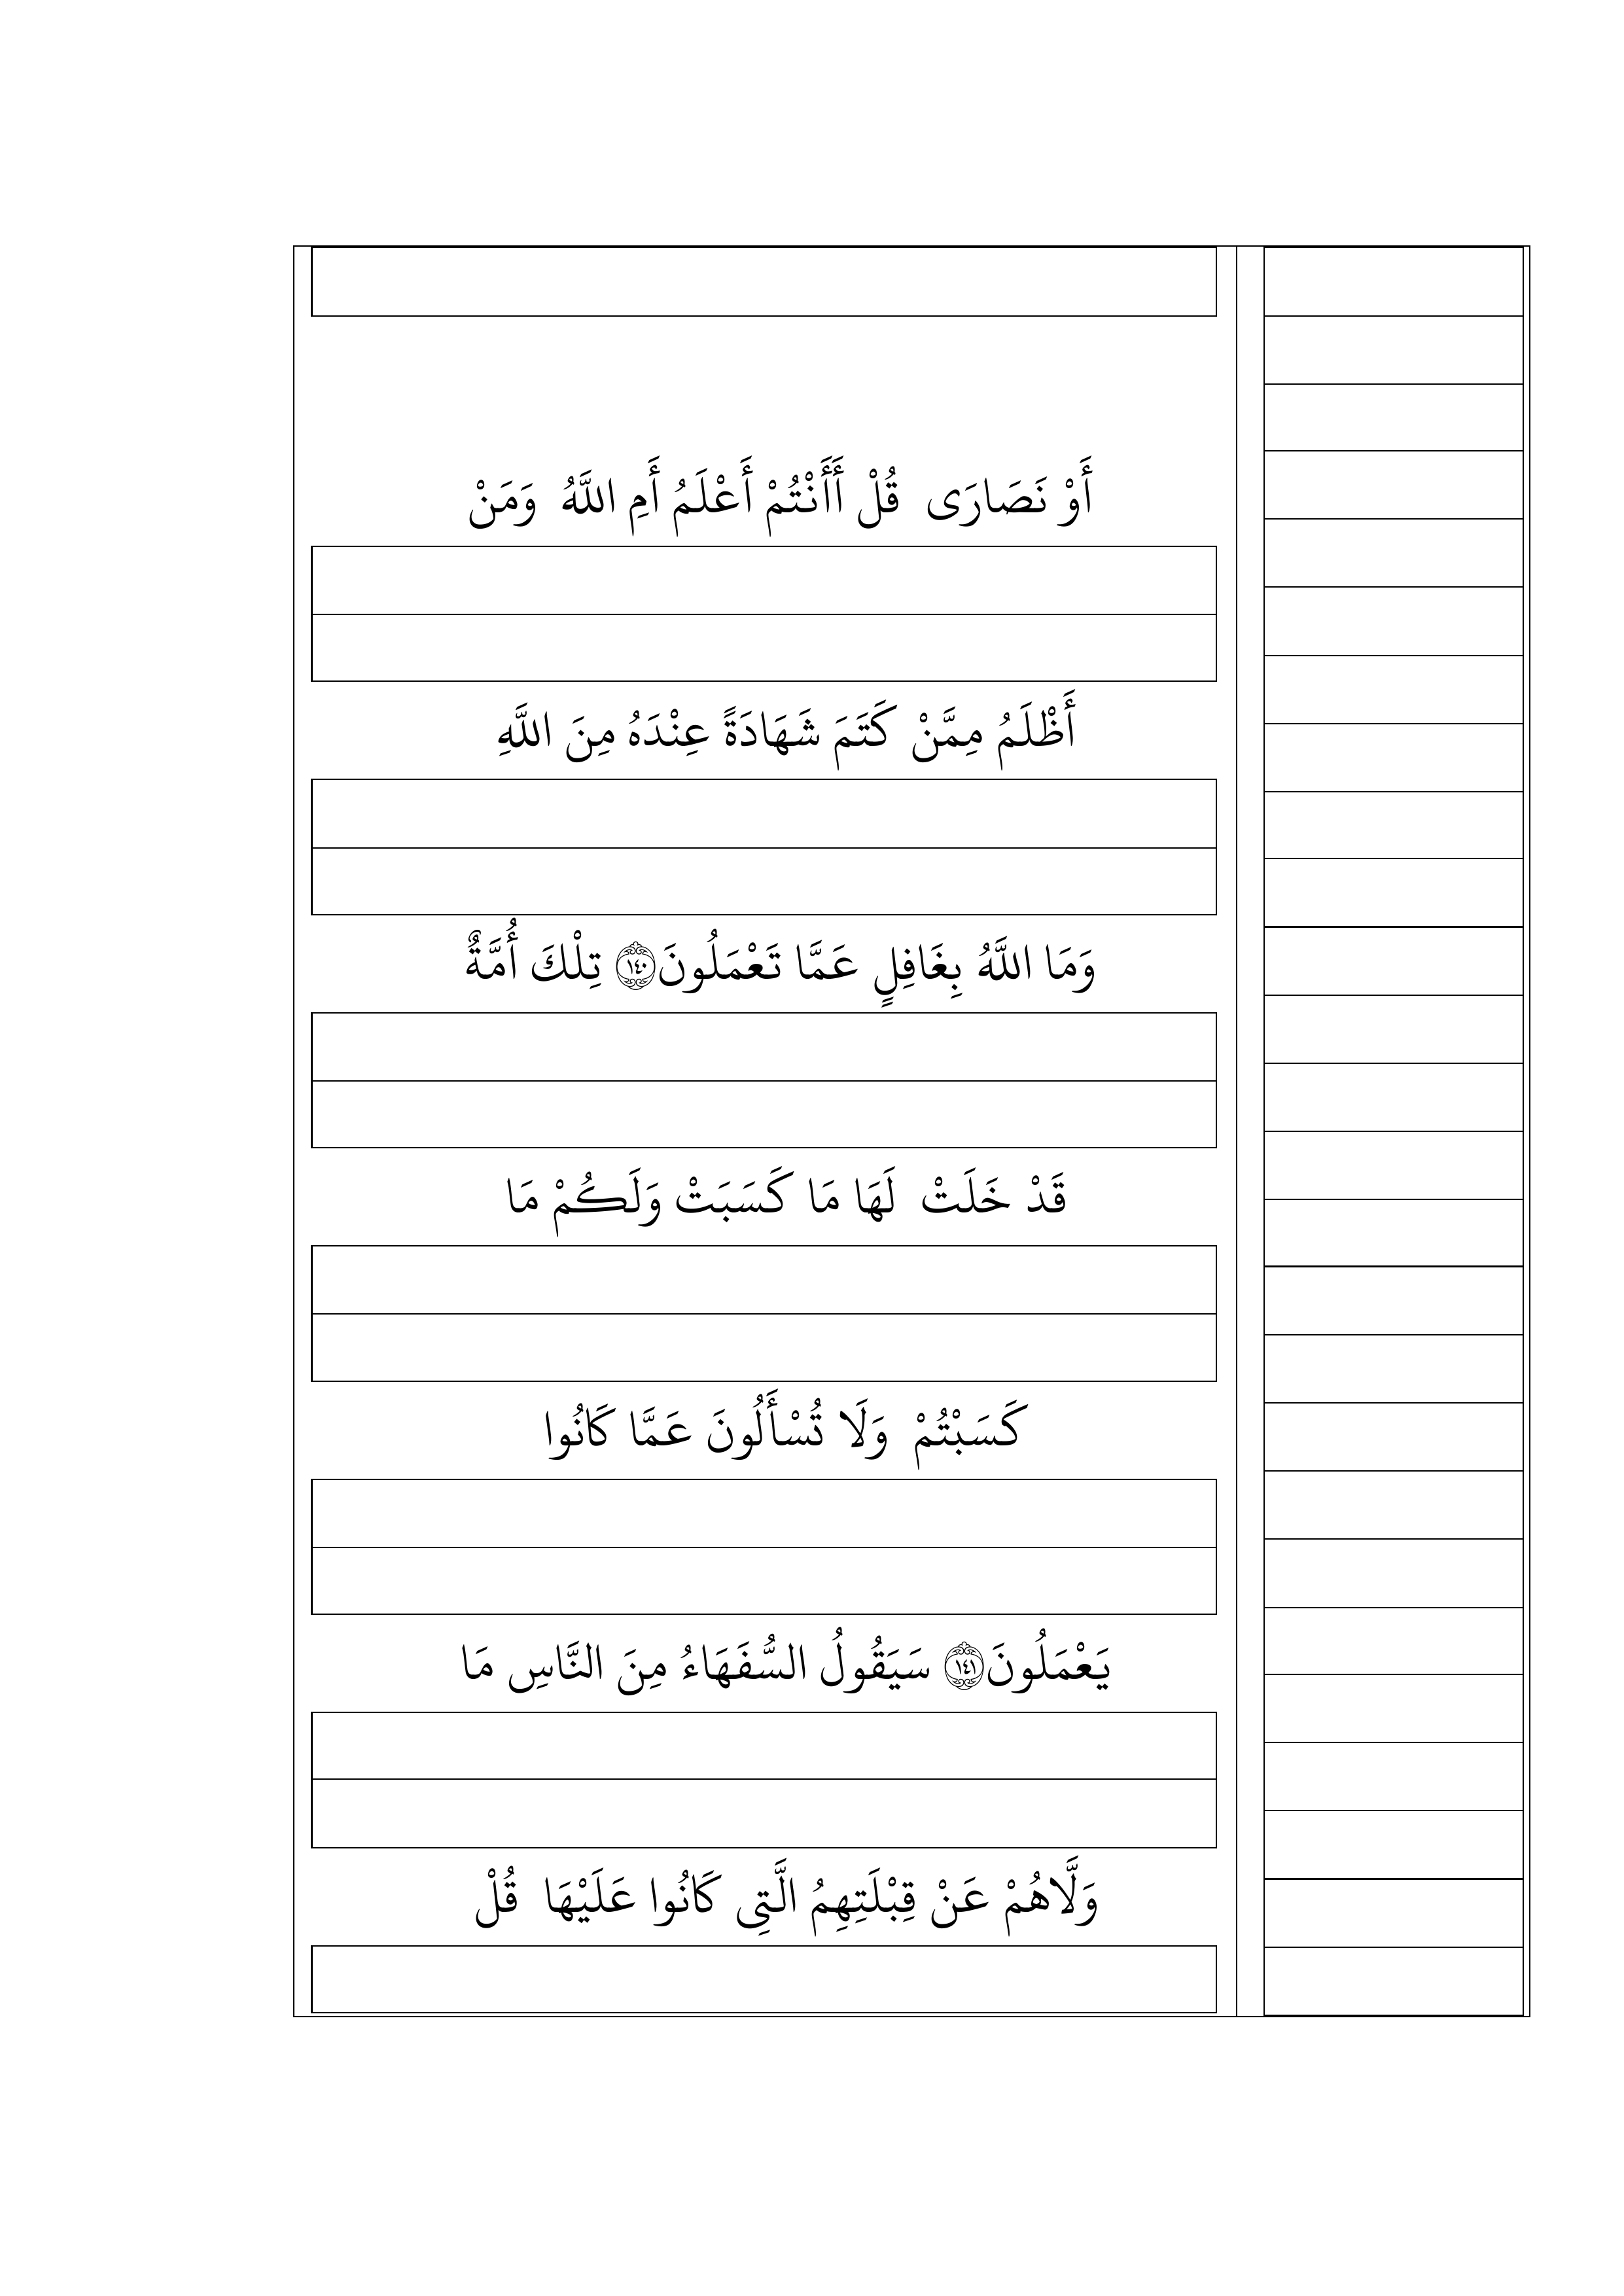 أَوْ نَصَارَى  قُلْ أَأَنْتُمْ أَعْلَمُ أَمِ اللَّهُ  وَمَنْ
أَظْلَمُ مِمَّنْ كَتَمَ شَهَادَةً عِنْدَهُ مِنَ اللَّهِ
وَمَا اللَّهُ بِغَافِلٍ عَمَّا تَعْمَلُونَ ۝١٤٠ تِلْكَ أُمَّةٌ
قَدْ خَلَتْ  لَهَا مَا كَسَبَتْ وَلَكُمْ مَا
كَسَبْتُمْ  وَلَا تُسْأَلُونَ عَمَّا كَانُوا
يَعْمَلُونَ ۝١٤١ سَيَقُولُ السُّفَهَاءُ مِنَ النَّاسِ مَا
وَلَّاهُمْ عَنْ قِبْلَتِهِمُ الَّتِي كَانُوا عَلَيْهَا  قُلْ